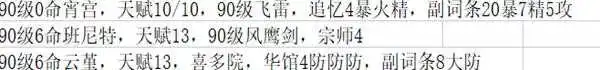 90级0命宵宫，天赋10/10，90级飞雷，追忆4暴火精，副词条20暴7精5攻
90级6命班尼特，天赋13，90级风鹰剑，宗师4
90级6命云堇，天赋13，喜多院，华馆4防防防，副词条8大防